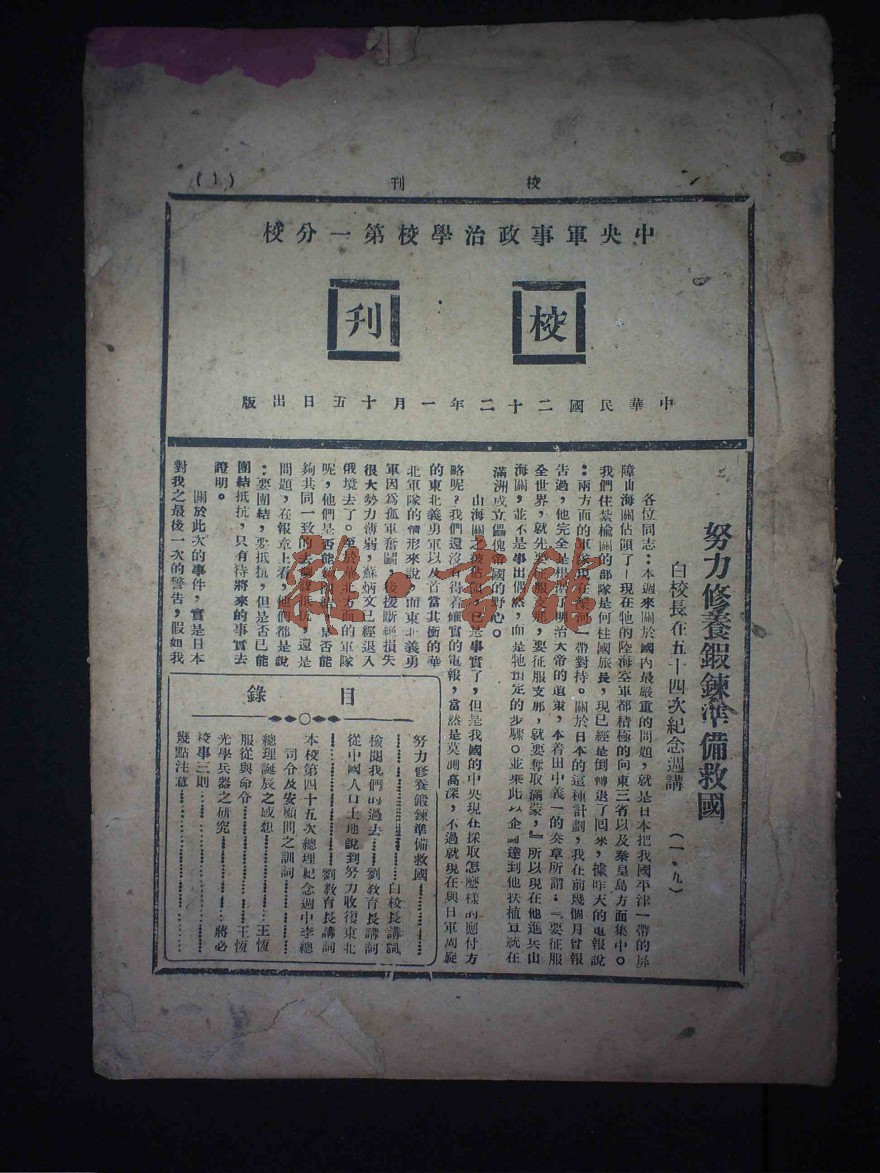 校刊
(1)
中央軍事政治學校第一分校
校刊
中華民國二十二年一月十五日出版
努力修養鍛鍊準備救國
白校長在五十四次紀念週講 (一、九)
各位同志：本週來關於國內最嚴重的問題，就是日本把我國平津一帶的屏
障山海關佔領了！現在牠的陸海空軍都積極的向東三省以及秦皇島方面集中。
我們住紮榆關的部隊是何柱國旅長，現已經是倒轉退了回來，據昨天的電報說
：兩方面的軍隊現在 一帶對持。關於日本的這種計劃，我在前幾個月曾報
告過，他完全是根據了明治大帝的遺策，本着田中義一的奏章所謂：『要征服
全世界，就先要征服支那，要征服支那，就要奪取滿蒙，』所以現在他進兵山
海關，並不是事出偶然，而是牠預定的步驟。並來此以企圖達到他扶植宣統在
滿洲成立傀儡帝國的野心。
山海關之被佔領，已是事實了，但是我國的中央現在採取怎麼樣的應付方
略呢？我們還沒有得着確實的電報，當然是莫測高深，不過就現在與日軍周旋
的東北義勇軍以及首當其衝的華
北軍隊的情形來說，而東北義勇
軍因爲孤軍奮鬭，後援斷絕損失
很大勢力薄弱，蘇炳文已經退入
俄境去了。至於 北方面的軍隊
呢，他們是否能 是否能
夠共同一致的去 抵抗，還是
問題，在報章上看，他們都是說
：要團結，要抵抗，但是否已能
團結抵抗，只有待將來的事實去
證明。
關於此次的事件，實是日本
對我之最後一次的警告，假如我
目錄
努力修養鍛鍊準備救國……………
……………………白校長講詞
檢閱我們的過去……劉教育長講詞
從中國人口土地說到努力收復東北
……………………劉教育長講詞
本校第四十五次總理紀念週中李總
司令及安顧問之訓詞……………
總理誕辰之感想……………王恆
服從與命令…………………王恆
光學兵器之研究……………蔣必
校事三則……………………
幾點注意……………………